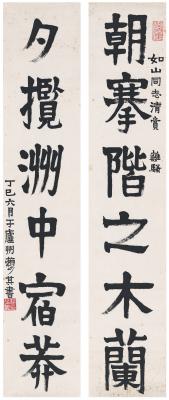 朝搴階之木蘭
如山同志清賞 離騷
夕攬洲中宿莽
丁巳六月于廬州賴少其書